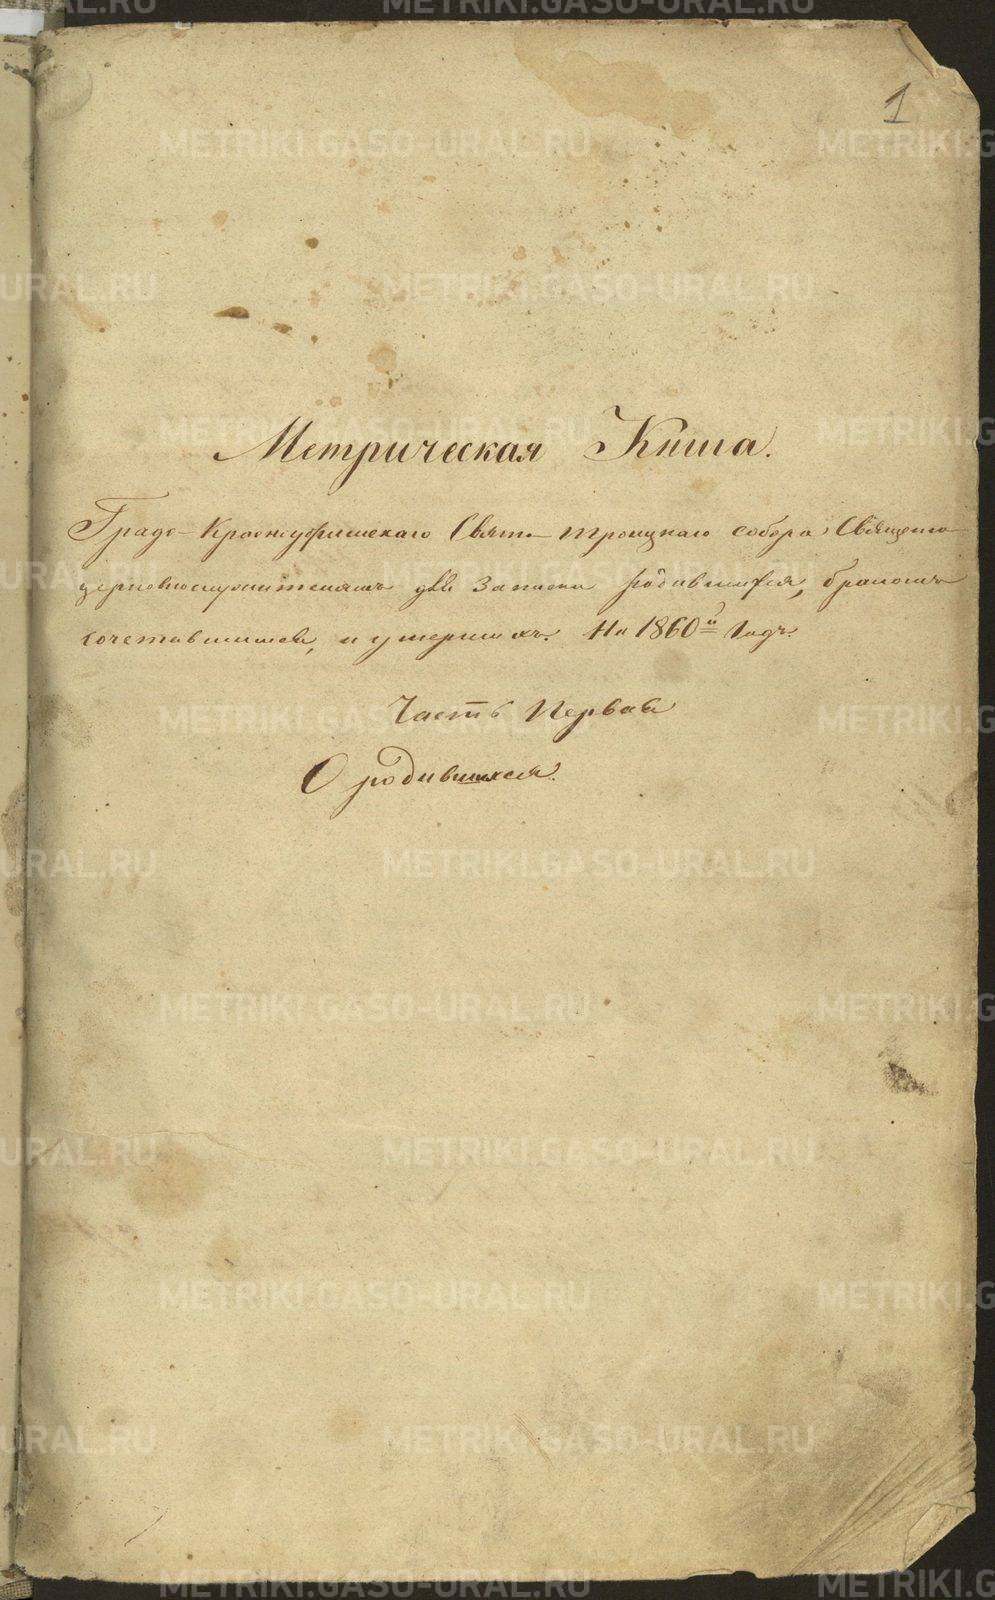 1
Метрическая Книга.
Градо-Красноуфимскаго Свято-Троицкаго собора, Священно
церковнослужителямъ для Записки родившихся, бракомъ
сочетавшихся, и умершихъ. На 1860й Годъ.
Часть Первая
О родившихся.
METRIKI.GASO-URAL.RU